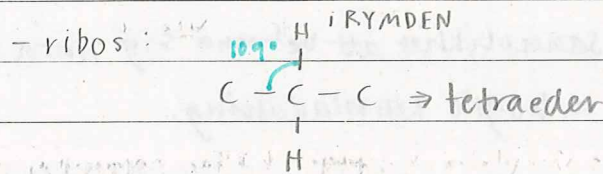 - ribos: H i RYMDEN
109°
C - C - C ⇒ tetraeder
H